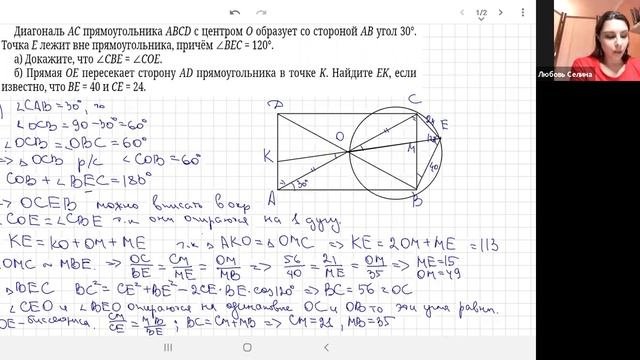 Диагональ AC прямоугольника ABCD с центром O образует со стороной AB угол 30°.
Точка E лежит вне прямоугольника, причём ∠BEC = 120°.
а) Докажите, что ∠CBE = ∠COE.
б) Прямая OE пересекает сторону AD прямоугольника в точке K. Найдите EK, если
известно, что BE = 40 и CE = 24.
1/2
Любовь Селина
∠CAB = 30°,
∠OCB = 90 - 30° = 60°
∠OCB = ∠OBC = 60°
=> △OCB р/с ∠COB = 60°
COB + ∠BEC = 180°
=> OCEB можно вписать в окр
∠COE = ∠CBE т.к они опираются на 1 дугу.
KE = KO + OM + ME т.к △AKO = △OMC => KE = 2OM + ME = 113
OMC ~ MBE. => OC/BE = CM/ME = OM/MB => 56/40 = 21/ME = OM/35 => ME = 15
OM = 49
△BEC BC² = CE² + BE² - 2CE·BE·cos120° => BC = 56 = OC
∠CEO и ∠BEO опираются на одинаковые OC и OB то эти углы равны.
OE - биссектриса. CM/CE = MB/BE ; BC = CM + MB => CM = 21, MB = 35
D
C
24
E
O
120°
M
K
40
A
30°
B